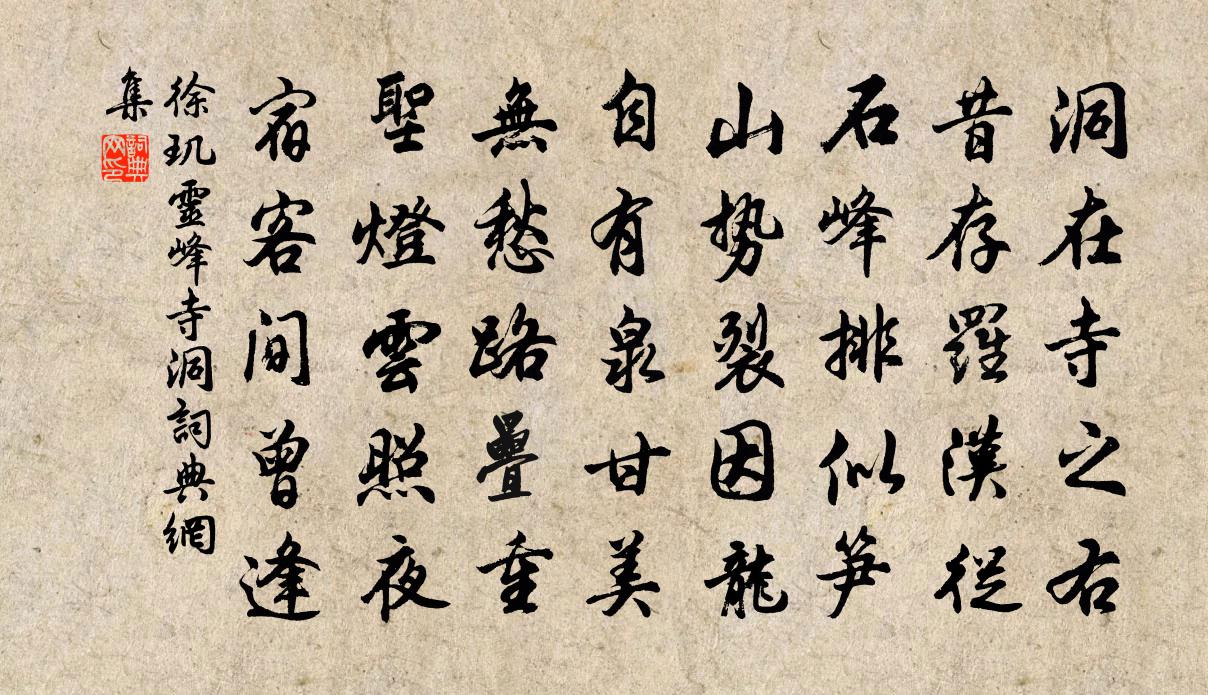 洞在寺之右
昔存羅漢從
石峰排似笋
山勢裂因龍
自有泉甘美
無愁路疊重
聖燈雲照夜
宿客間曾逢
徐玑靈峰寺洞詞典網
集
詞典
网印